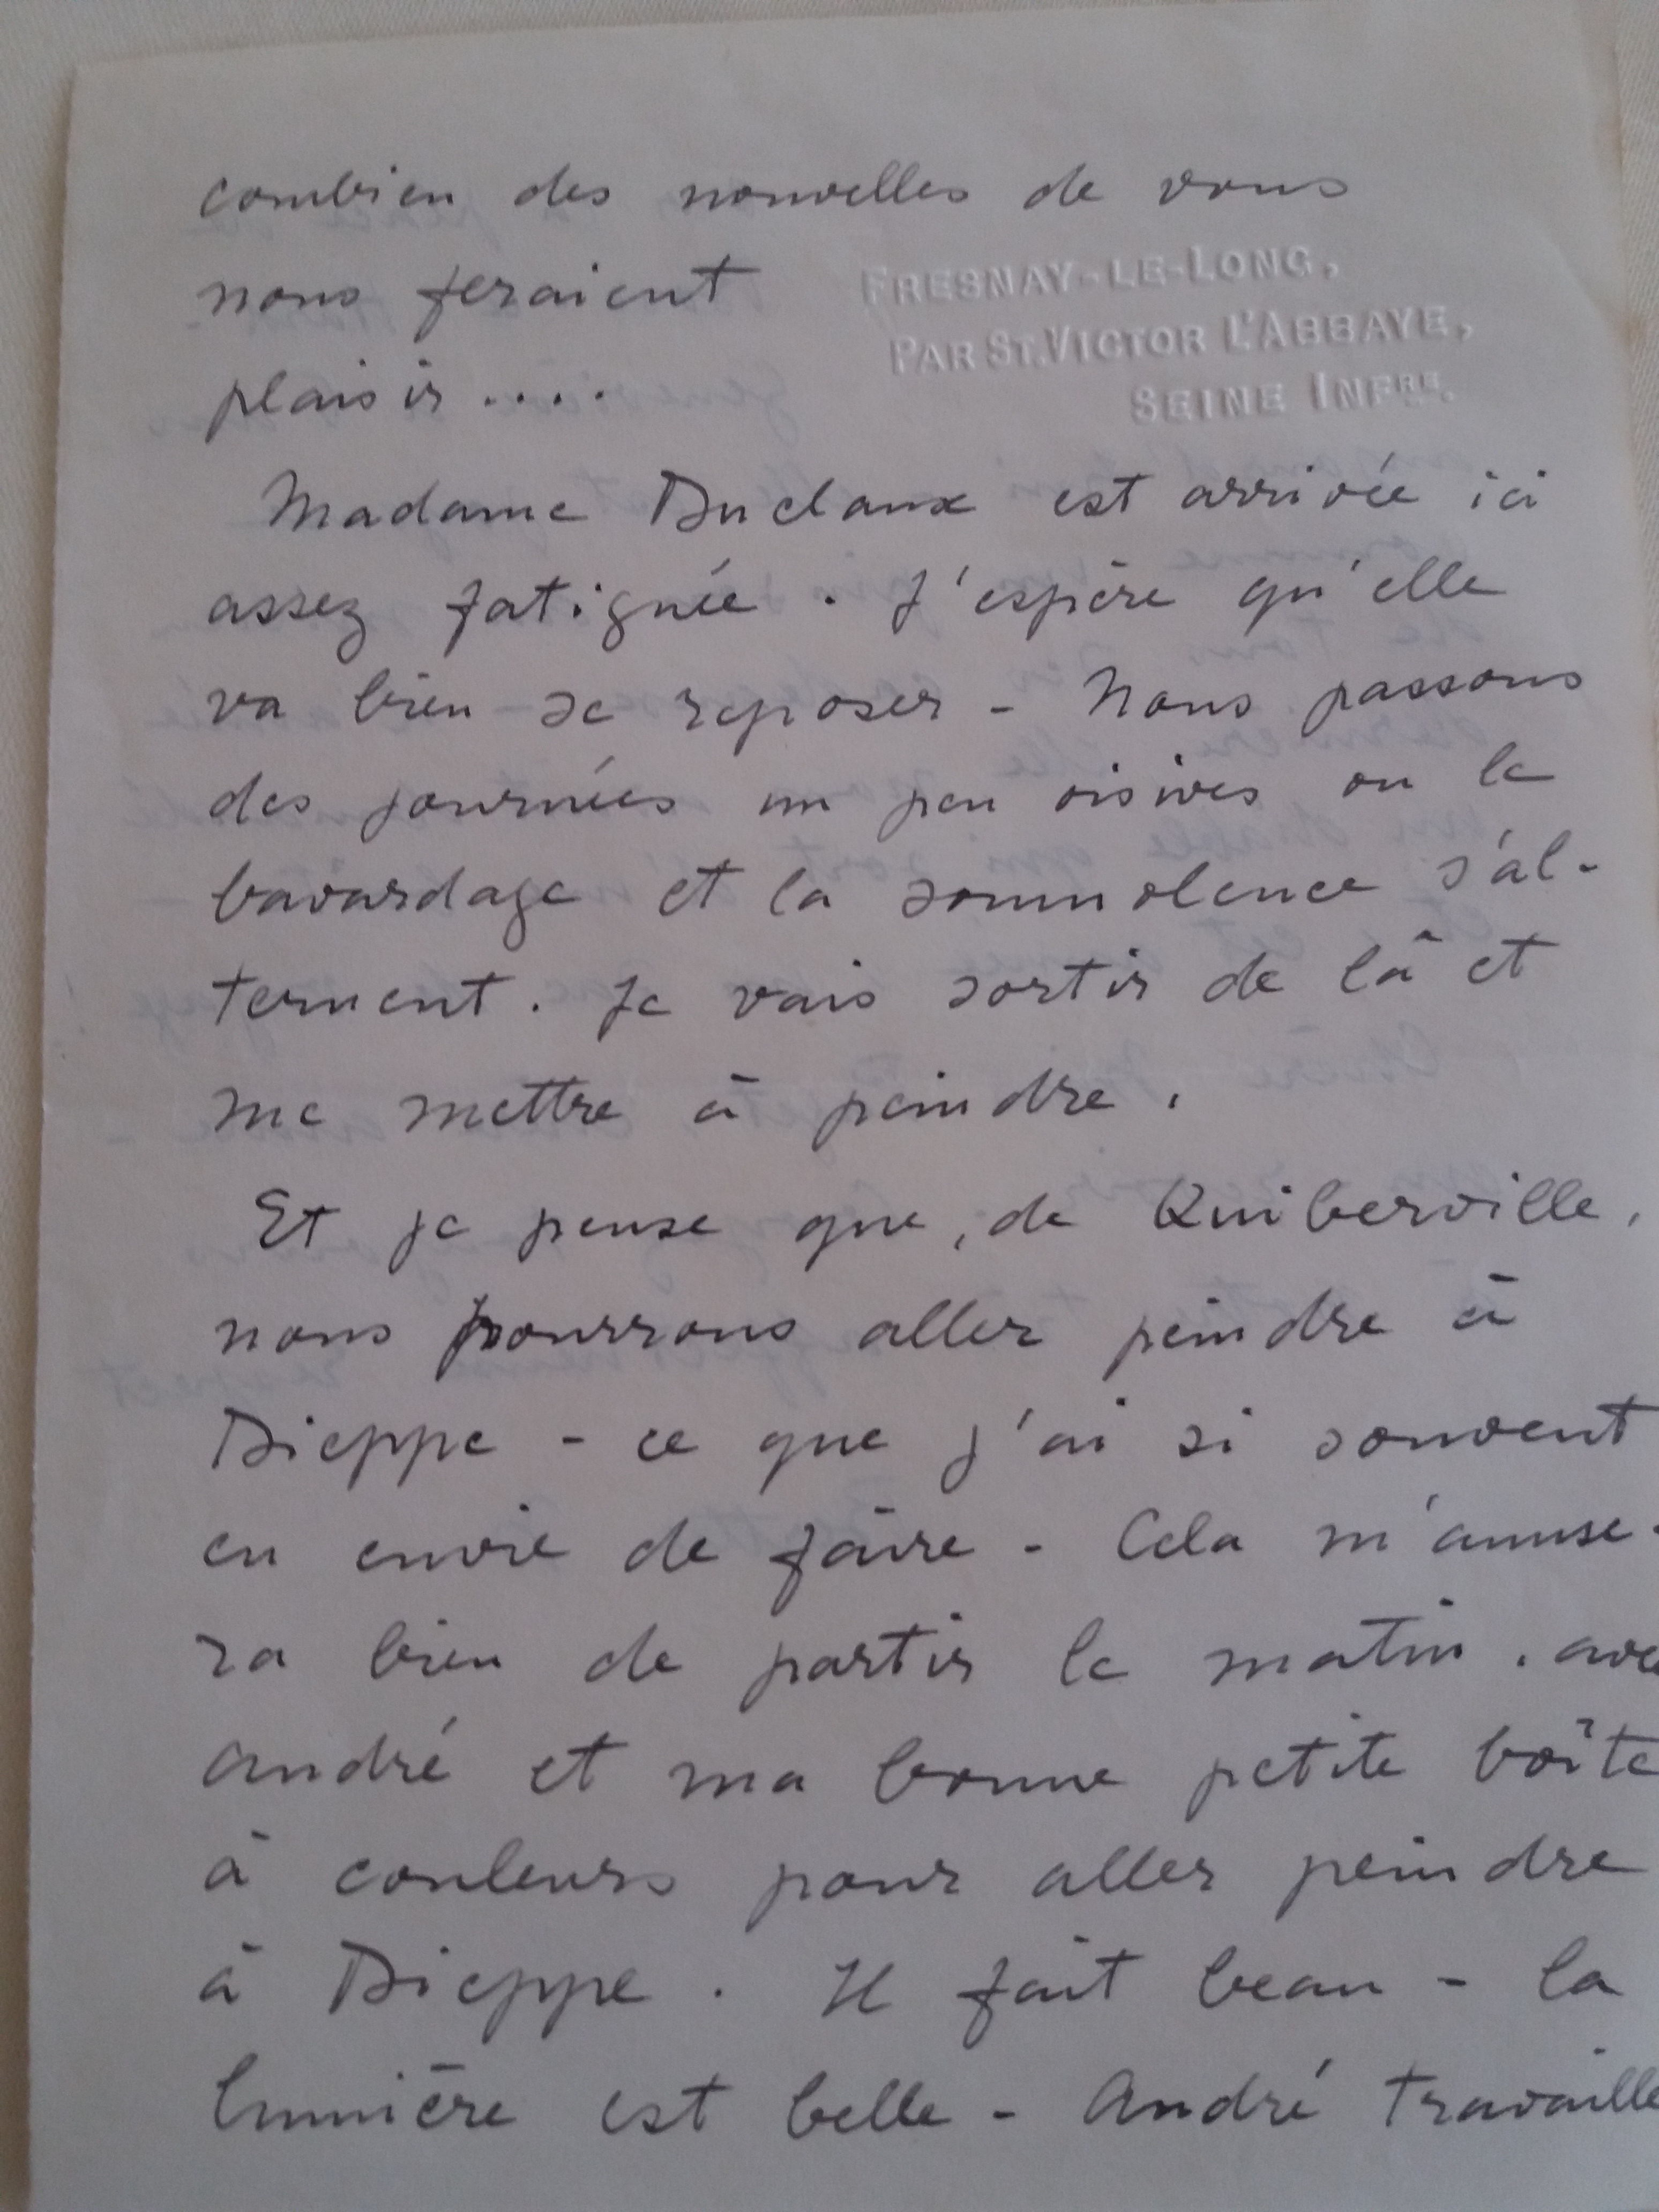 combien des nouvelles de vous
nous feraient
FRESNAY-LE-LONG,
PAR ST. VICTOR L'ABBAYE,
SEINE INFRE.
plaisir ....
Madame Duclaux est arrivée ici
assez fatiguée. J'espère qu'elle
va bien se reposer - Nous passons
des journées un peu oisives ou le
bavardage et la somnolence s'al-
ternent. Je vais sortir de là et
me mettre à peindre.
Et je pense que, de Quiberville,
nous pourrons aller peindre à
Dieppe - ce que j'ai si souvent
eu envie de faire - Cela m'amuse-
ra bien de partir le matin, avec
André et ma bonne petite boîte
à couleurs pour aller peindre
à Dieppe. Il fait beau - la
lumière est belle - André travaille